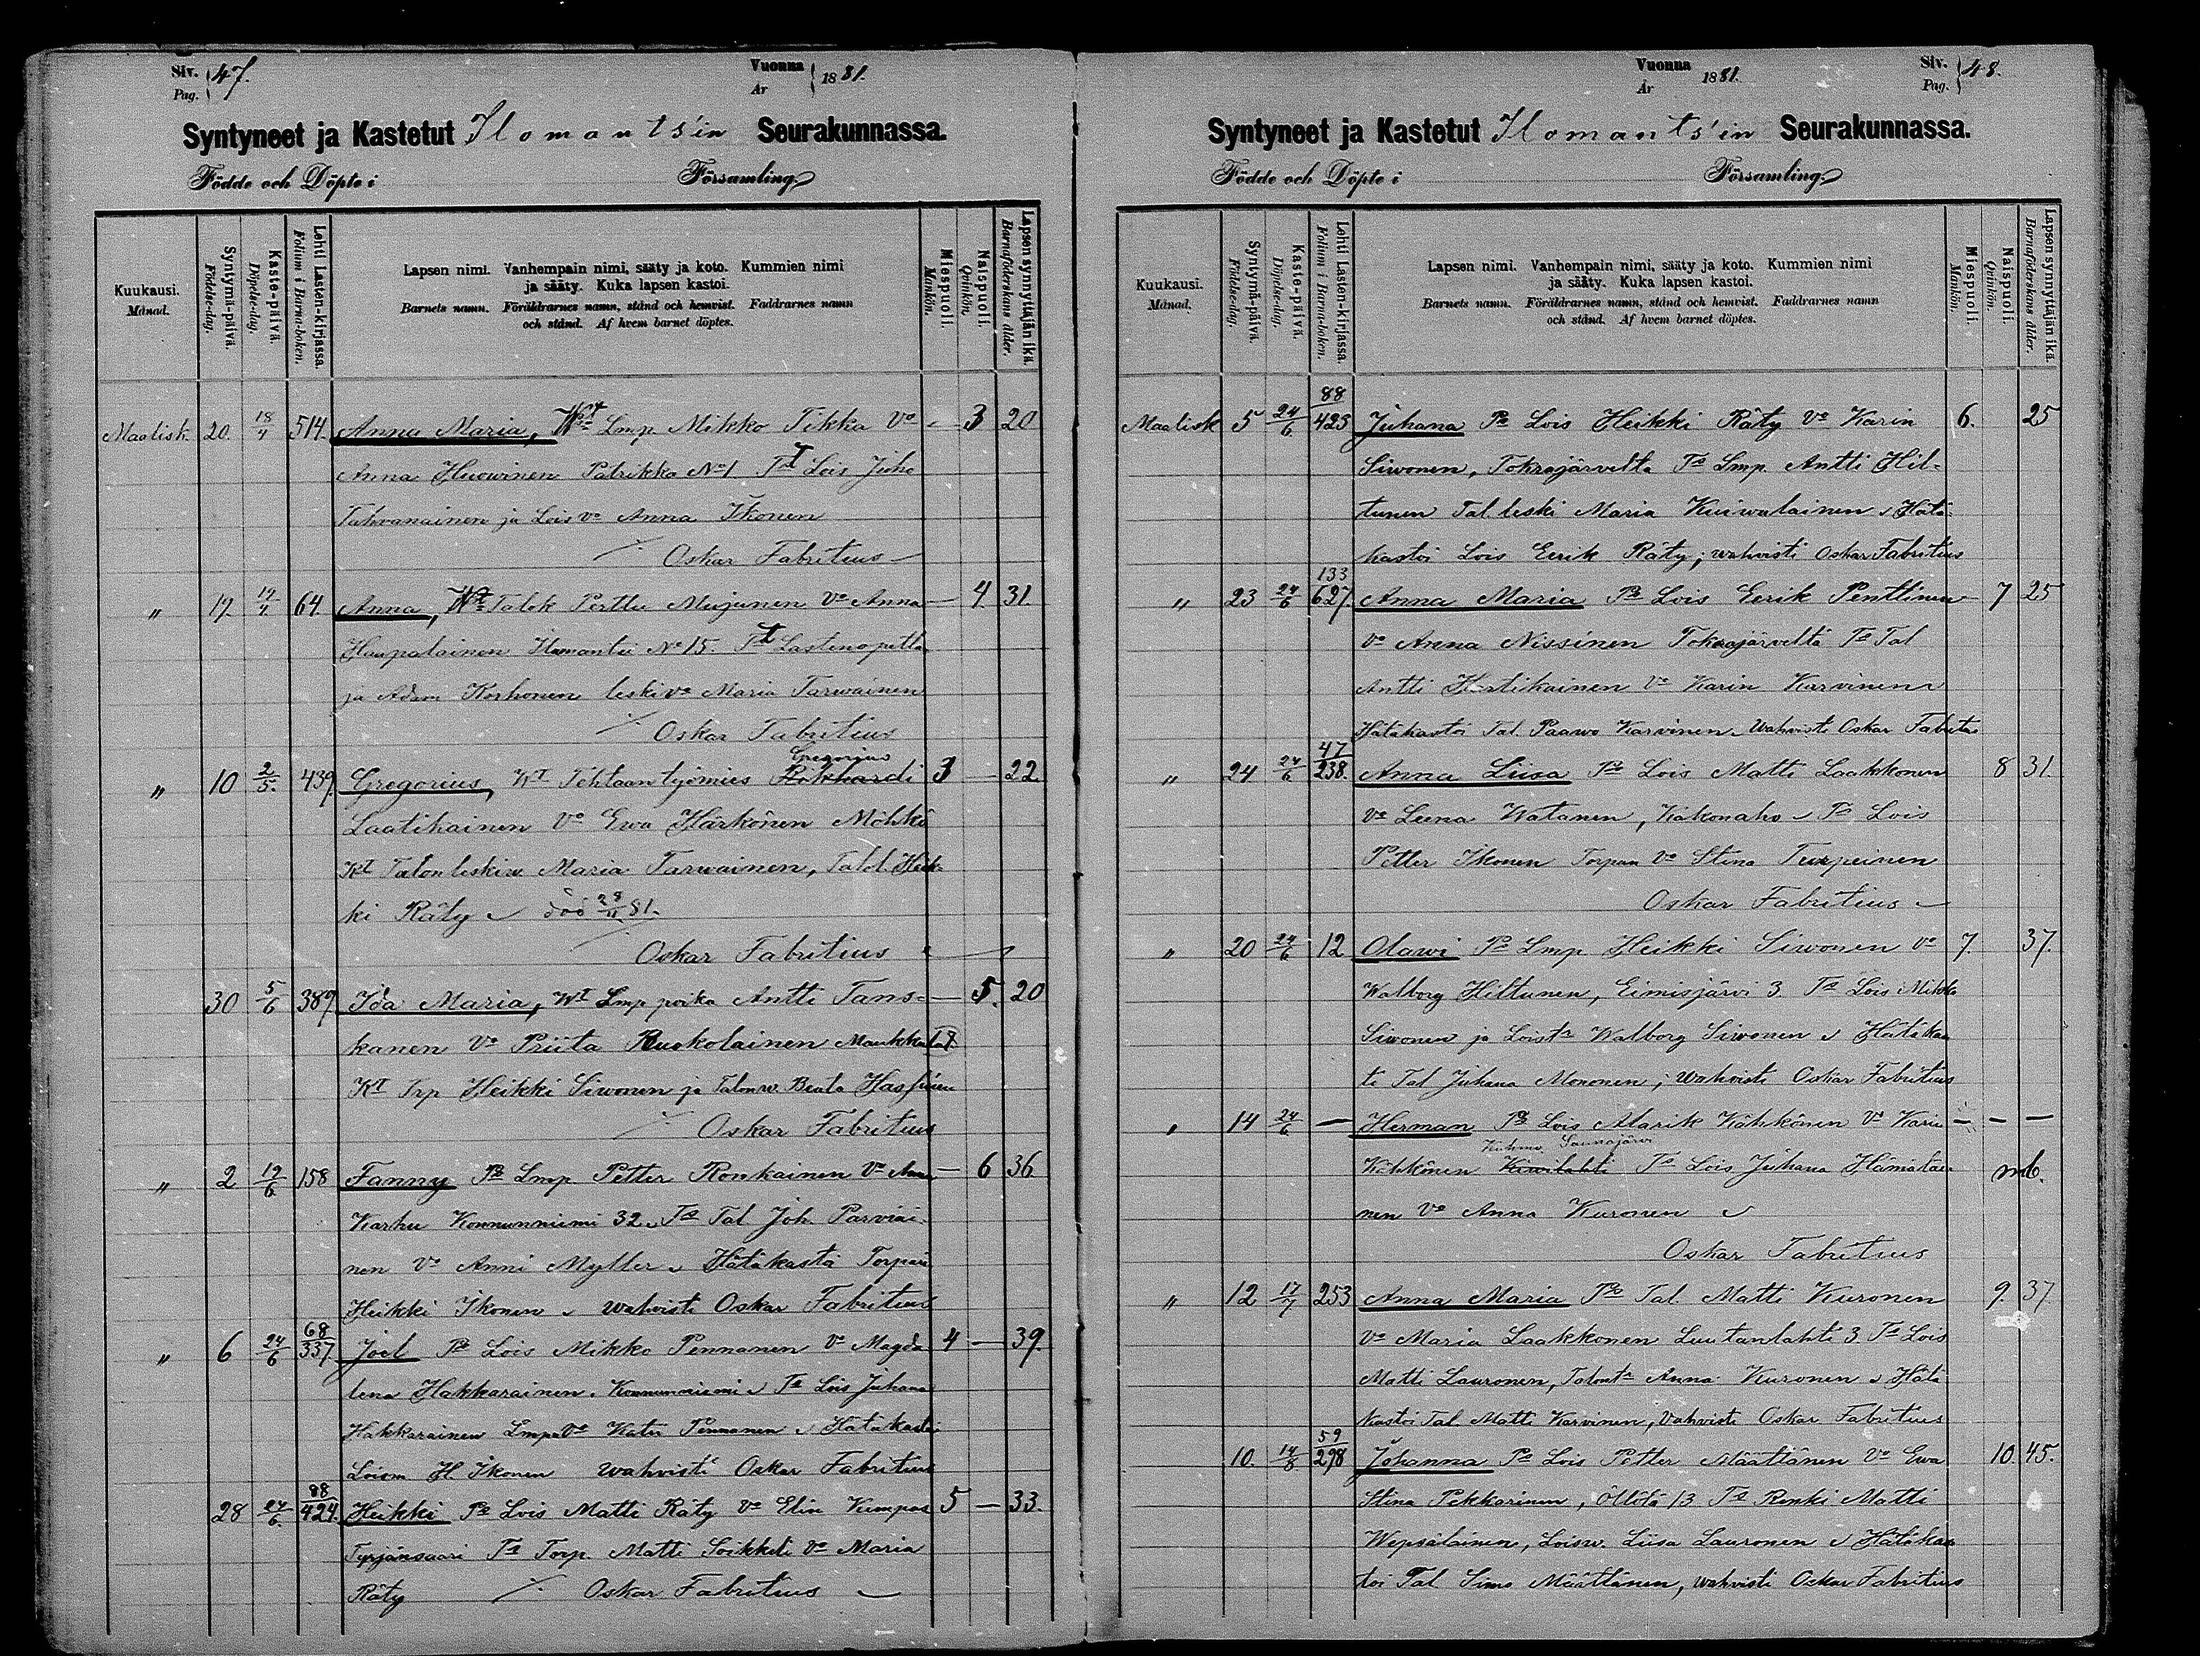 Siv. 47.
Pag.
Vuonna 1881.
År
Syntyneet ja Kastetut Ilomants'in Seurakunnassa.
Födde och Döpte i Församling.
Kuukausi. Månad.
Syntymä-päivä. Födelse-dag.
Kaste-päivä. Döpelse-dag.
Lehti Lasten-kirjassa. Folium i Barna-boken.
Lapsen nimi. Vanhempain nimi, sääty ja koto. Kummien nimi
ja sääty. Kuka lapsen kastoi.
Barnets namn. Föräldrarnes namn, stånd och hemvist. Faddrarnes namn
och stånd. Af hvem barnet döptes.
Miespuoli. Mankön.
Naispuoli. Qvinkön.
Lapsen synnyttäjän ikä. Barnaföderskans ålder.
Maalisk. 20. 18/4 514. Anna Maria, Lmp. Mikko Tikka Vo - 3 20
Anna Huowinen Patrikka No 1 Tt Lois Juho
Tahvanainen ja Lois vo Anna Ikonen
Oskar Fabritius
" 17. 19/4 64. Anna, Talok Perttu Mujunen Vo Anna - 4. 31.
Haapalainen Ilomantsi No 15. Tt Lastenopetta
ja Adam Korhonen leski vo Maria Tarwainen
Oskar Fabritius
Gregorius
" 10 2/5. 439. Gregorius, Wt Tehtaan työmies 3 - 22.
Laatikainen Vo Ewa Härkönen Möhkö
Kt Talon leskiw. Maria Tarwainen, Talol. Heik-
ki Räty döö 29/11 81.
Oskar Fabritius
30 5/6 389. Ida Maria, Wt Lmp poika Antti Tans= - 5. 20
kanen Vo Priita Ruokolainen Maukkula
Kt Trp Heikki Siwonen ja Talonw. Beata Hassinen
Oskar Fabritius
" 2 19/6 158 Fanny Po Lmp. Petter Ronkainen Vo Anna - 6 36
Karhu Konnunniemi 32. Ts Tal Joh. Parviai-
nen Vo Anni Myller Hätäkasta Torpari
Heikki Ikonen wahvisti Oskar Fabritius
" 6 24/6 68/337. Joel Po Lois Mikko Pennanen Vo Magda 4 - 39.
lena Hakkarainen. Konnunniemi Ts Lois Juhana
Hakkarainen Lmp Vo Katri Pennanen Hätäkastoi
Loism H. Ikonen wahvisti Oskar Fabritius
28 24/6. 88/424. Heikki Po Lois Matti Räty Vo Elin Kumpas 5 - 33.
Tyrjänsaari Ts Torp. Matti Soikkeli Vo Maria
Räty Oskar Fabritius
Vuonna 1881.
År
Siv. 48.
Pag.
Syntyneet ja Kastetut Ilomants'in Seurakunnassa.
Födde och Döpte i Församling.
Kuukausi. Månad.
Syntymä-päivä. Födelse-dag.
Kaste-päivä. Döpelse-dag.
Lehti Lasten-kirjassa. Folium i Barna-boken.
Lapsen nimi. Vanhempain nimi, sääty ja koto. Kummien nimi
ja sääty. Kuka lapsen kastoi.
Barnets namn. Föräldrarnes namn, stånd och hemvist. Faddrarnes namn
och stånd. Af hvem barnet döptes.
Miespuoli. Mankön.
Naispuoli. Qvinkön.
Lapsen synnyttäjän ikä. Barnaföderskans ålder.
Maalisk 5 24/6. 88/423 Juhana Po Lois Heikki Räty Vo Karin 6. 25
Siwonen, Tokrajärveltä Ts Lmp. Antti Hil=
tunen Tal. leski Maria Kuiwalainen Hätä-
kastoi Lois Eerik Räty; wahvisti Oskar Fabritius
" 23 24/6 133/627. Anna Maria Po Lois Eerik Penttinen - 7 25
Vo Anna Nissinen Tokrajärveltä Ts Tal
Antti Hortikainen Vo Karin Karvinen
Hätäkastoi Tal. Paawo Karvinen. Wahvisti Oskar Fabritius
" 24 24/6 47/238. Anna Liisa Po Lois Matti Laakkonen 8 31.
Vo Leena Watanen, Kakonaho Ts Lois
Petter Ikonen Torpan Vo Stina Turpeinen
Oskar Fabritius
" 20 24/6 12 Olawi Po Lmp. Heikki Siwonen Vo 7. 37.
Walborg Hiltunen, Eimisjärvi 3. Ts Lois Mikko
Siwonen ja Loistr Walborg Siwonen Hätäkas
ti Tal Juhana Mononen; wahvisti Oskar Fabritius
" 14 24/6 - Herman Po Lois Alarik Kähkönen Vo Karin - - -
Kuhmo Saunajärvi
Kähkönen Kiwilahti Ts Lois Juhana Hämäläi- mb.
nen Vo Anna Kuronen
Oskar Fabritius
" 12 17/7 253 Anna Maria Po Tal. Matti Kuronen 9. 37.
Vo Maria Laakkonen Luutanlahti 3. Ts Lois
Matti Lauronen, Talontr Anna Kuronen Hätä
kastoi Tal. Matti Karvinen, Vahvisti Oskar Fabritius
10. 14/8. 59/278 Johanna Po Lois Petter Määttänen Vo Ewa 10. 45.
Stina Pekkarinen, Öllölä 13 Ts Renki Matti
Wepsäläinen, Loisw. Liisa Lauronen Hätäkas
toi Tal. Simo Määttänen, wahvisti Oskar Fabritius